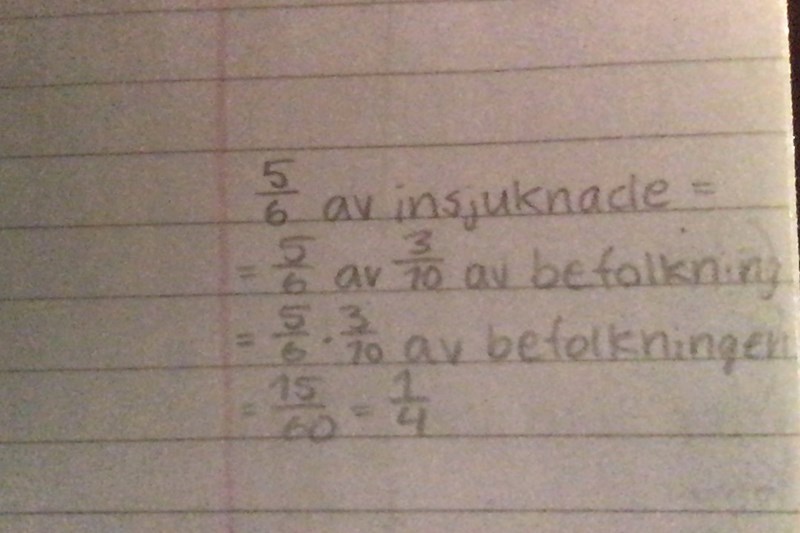 5/6 av insjuknade =
= 5/6 av 3/10 av befolkning
= 5/6 · 3/10 av befolkningen
= 15/60 = 1/4